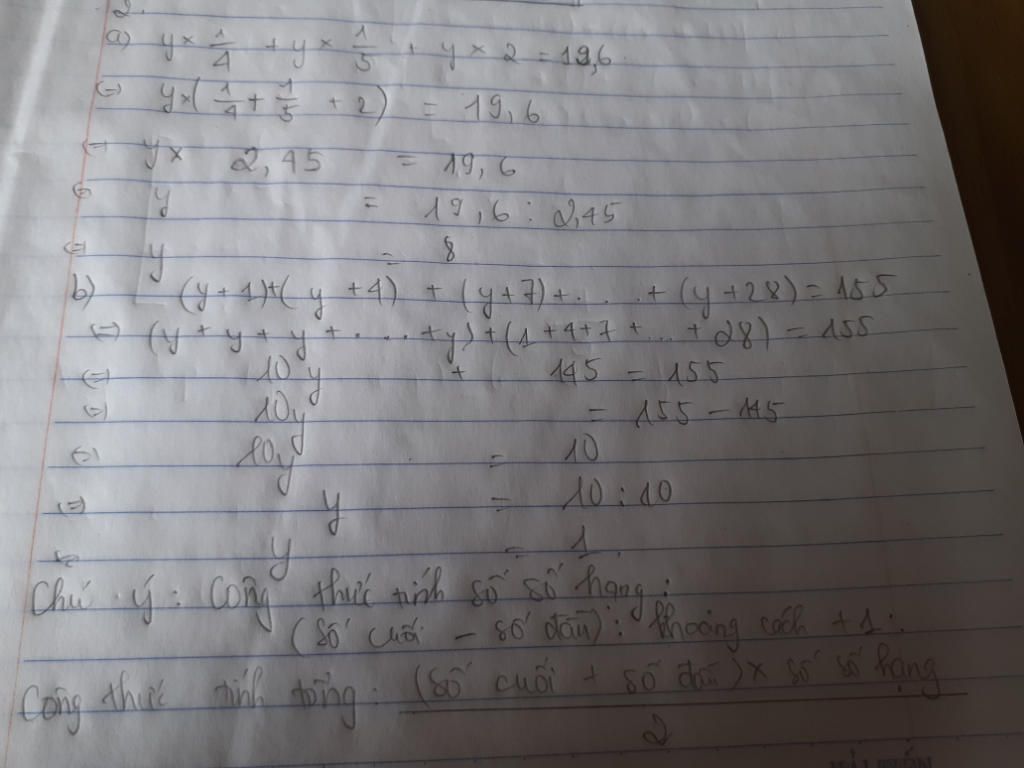 2.
a) y × 1/4 + y × 1/5 + y × 2 = 19,6
<=> y × (1/4 + 1/5 + 2) = 19,6
<=> y × 2,45 = 19,6
<=> y = 19,6 : 2,45
<=> y = 8
b) (y + 1) + (y + 4) + (y + 7) + . . . . + (y + 28) = 155
<=> (y + y + y + .... + y) + (1 + 4 + 7 + ... + 28) = 155
<=> 10y + 145 = 155
<=> 10y = 155 - 145
<=> 10y = 10
<=> y = 10 : 10
<=> y = 1.
Chú ý: Công thức tính số số hạng:
(số cuối - số đầu) : khoảng cách + 1.
Công thức tính tổng: (số cuối + số đầu) × số số hạng
2